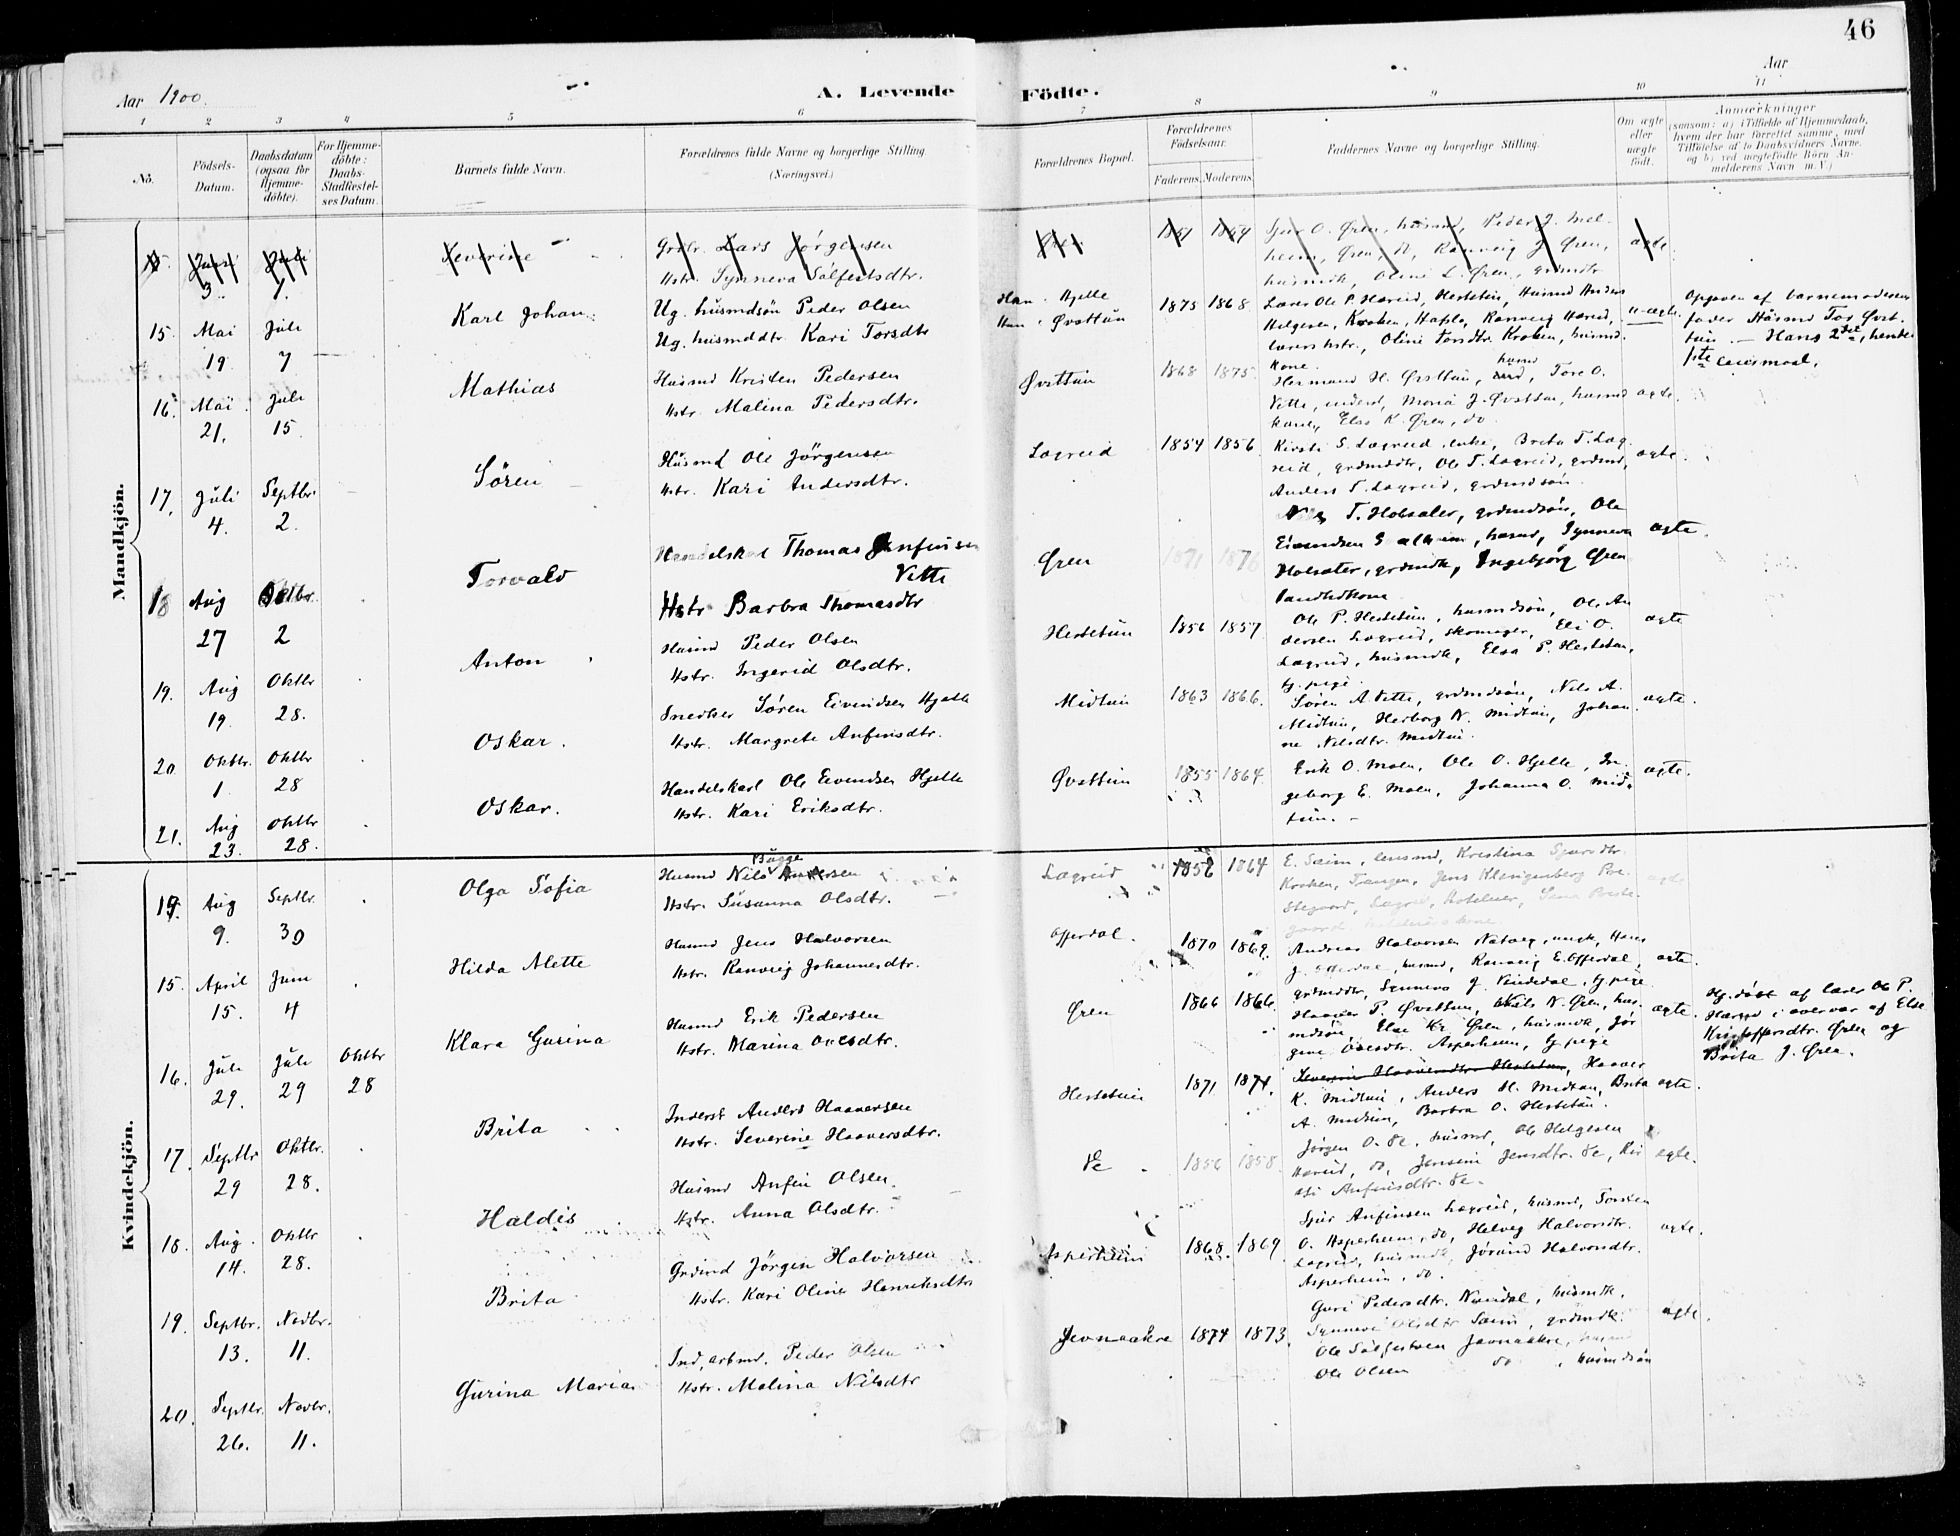 46
Aar 1900.
A. Levende Födte.
Aar
1 2 3 4 5 6 7 8 9 10 11
No.
Födsels-Datum.
Daabsdatum (ogsaa for Hjemme-döbte).
For Hjemme-döbte: Daabs-Stadfæstel-ses Datum.
Barnets fulde Navn.
Forældrenes fulde Navne og borgerlige Stilling.
(Næringsvei.)
Forældrenes Bopæl.
Forældrenes Födselsaar.
Faderens. Moderens.
Faddernes Navne og borgerlige Stilling.
Om ægte eller uægte födt.
Anmærkninger
(saasom: a) i Tilfælde af Hjemmedaab,
hvem der har forrettet samme, med
Tilföielse af to Daabsvidners Navne.
og b) ved uægtefödte Börn An-
melderens Navn m. V.)
Mandkjön.
3. 1. Severine
Lars Jørgensen
Hstr. Synneva Sølfestsdtr.
Sjur O. Øren, husmd, Peder J. Mel-
heim, Øren, do, Ranveig J. Øren,
husmdk, Oline L. Øren, grdmdtr
ægte
15. Mai 19. Juli 7
Karl Johan
Ug. husmdsøn Peder Olsen
Ug. husmddtr Kari Torsdtr
Han. Hjelle
Hun. Øvsttun
1873 1868
Lærer Ole P. Hæreid, Hestetun, Husmd Anders
Helgesen, Kroken, Hafslo, Ranveig Hæreid,
lærers hstr., Oline Torsdtr. Kroken, husmd.
kone.
uægte.
Opgaven af barnemoderens
fader Husmd Tor Øvst-
tun. — Hans 2det, hendes
1ste leiermaal.
16. Mai 21. Juli 15.
Mathias
Husmd Kristen Pedersen
Hstr. Malina Pedersdtr.
Øvsttun
1868 1875
Hermund H. Øvsttun, husmd, Tore O.
Vette, inderst, Maria J. Øvsttun, husmd
kone, Else K. Øren, do.
ægte.
17. Juli 4. Septbr. 2.
Sören
Husmd Ole Jörgensen
Hstr. Kari Andersdtr.
Lægreid
1854 1856
Kirsti S. Lægreid, enke, Brita T. Læg-
reid, grdmddtr, Ole T. Lægreid, grdmd,
Anders T. Lægreid, grdmdsøn.
ægte.
18 Aug 27 Oktbr. 2
Torvald
Handelskarl Thomas Anfinsen
Vette
Hstr. Barbra Thomasdtr
Øren
1871 1876
Nils T. Holsæter, grdmdsøn, Ole
husmd, Synneva
Holsæter, grdmdk, Ingebjörg Øren
Landhdkone
ægte.
19. Aug 19. Oktbr 28.
Anton
Husmd Peder Olsen
Hstr. Ingerid Olsdtr.
Hestetun
1856 1857
Ole P. Hestetun, husmdsøn, Ole An-
dersen Lægreid, skomager, Eli O.
Lægreid, husmdk, Elsa P. Hestetun,
tj. pige.
ægte
20 Oktbr. 1 Oktbr 28
Oskar.
Snedker Sören Eivindsen Hjelle
Hstr. Margrete Anfinsdtr.
Midtun
1863 1866.
Søren A Vette, grdmdsøn, Nils A.
Midtun, Herborg N. Midtun, Johan-
ne Nilsdtr. Midtun.
ægte.
21. Aug 23. Oktbr 28.
Oskar.
Handelskarl Ole Eivindsen Hjelle
Hstr. Kari Eriksdtr.
Øvsttun
1855 1864.
Erik O. Moen, Ole O. Hjelle, In-
geborg E. Moen, Johanna O. Mid-
tun. —
ægte.
Kvindekjön.
14. Aug 9. Septbr. 30
Olga Sofia
Husmd Nils Bugge Andersen
Hstr. Susanna Olsdtr.
Lægreid
1852 1864
E. Seim, lensmd, Kristina Sjursdtr.
Kroken, Jens Klingenberg Pre-
stegaard, Lægreid, hoteleier,
ægte
15. April 15. Juni 4
Hilda Alette
Husmd Jens Halvorsen
Hstr. Ranveig Johannesdtr.
Offerdal.
1870 1869.
Andreas Halvorsen Natvig, ungk, Hans
J. Offerdal, husmd, Ranveig E. Offerdal,
grdmddtr, Synneva J. Vindedal, tj. pige
ægte.
16. Juli 29. Juli 29 Oktbr 28
Klara Gurina
Husmd Erik Pedersen
Hstr. Marina Ovesdtr.
Øren
1866 1866.
Haaver P. Øvsttun, Nils N. Øren, hus-
mdsøn, Else Kr. Øren, husmdk, Jør-
gine Ovesdtr. Asperheim, tj. pige
ægte.
Hj. døbt af lærer Ole P.
Hæreid i overvær af Else
Kristoffersdtr. Øren og
Brita J. Øren.
17. Septbr 29 Oktbr. 28.
Brita
Inderst Anders Haaversen
Hstr. Severine Haaversdtr.
Hestetun
1871 1874.
Severine Haaversdtr. Hestetun, Haaver
K. Midtun, Anders H. Midtun, Brita
A. Midtun, Barbra O. Hestetun.
ægte.
18. Aug. 14. Oktbr 28.
Haldis
Husmd Anfin Olsen
Hstr. Anna Olsdtr.
De
1856 1858.
Jørgen O. De, husmd, Ole Helgesen
Hæreid, do, Jensine Jensdtr. De, Kir-
sti Anfinsdtr. De.
ægte.
19. Septbr. 13. Novbr. 11.
Brita
Grdmd Jörgen Halvorsen
Hstr. Kari Oline Henriksdtr
Asperheim
1868 1869
Sjur Anfinsen Lægreid, husmd, Torsten
O. Asperheim, do, Helveg Halvorsdtr.
Lægreid, husmdk, Jørand Halvorsdtr.
Asperheim, do.
ægte.
20. Septbr. 26. Novbr. 11.
Gurina Maria
Ind. arbmd. Peder Olsen
Hstr. Malina Nilsdtr
Jevnaakre
1874 1873.
Guri Pedersdtr. Nundal, husmdk.
Synneve Olsdtr Seim, grdmdk.
Ole Sølfestsen Jevnaakre, husmd
Ole Olsen do, husmdsøn
ægte.